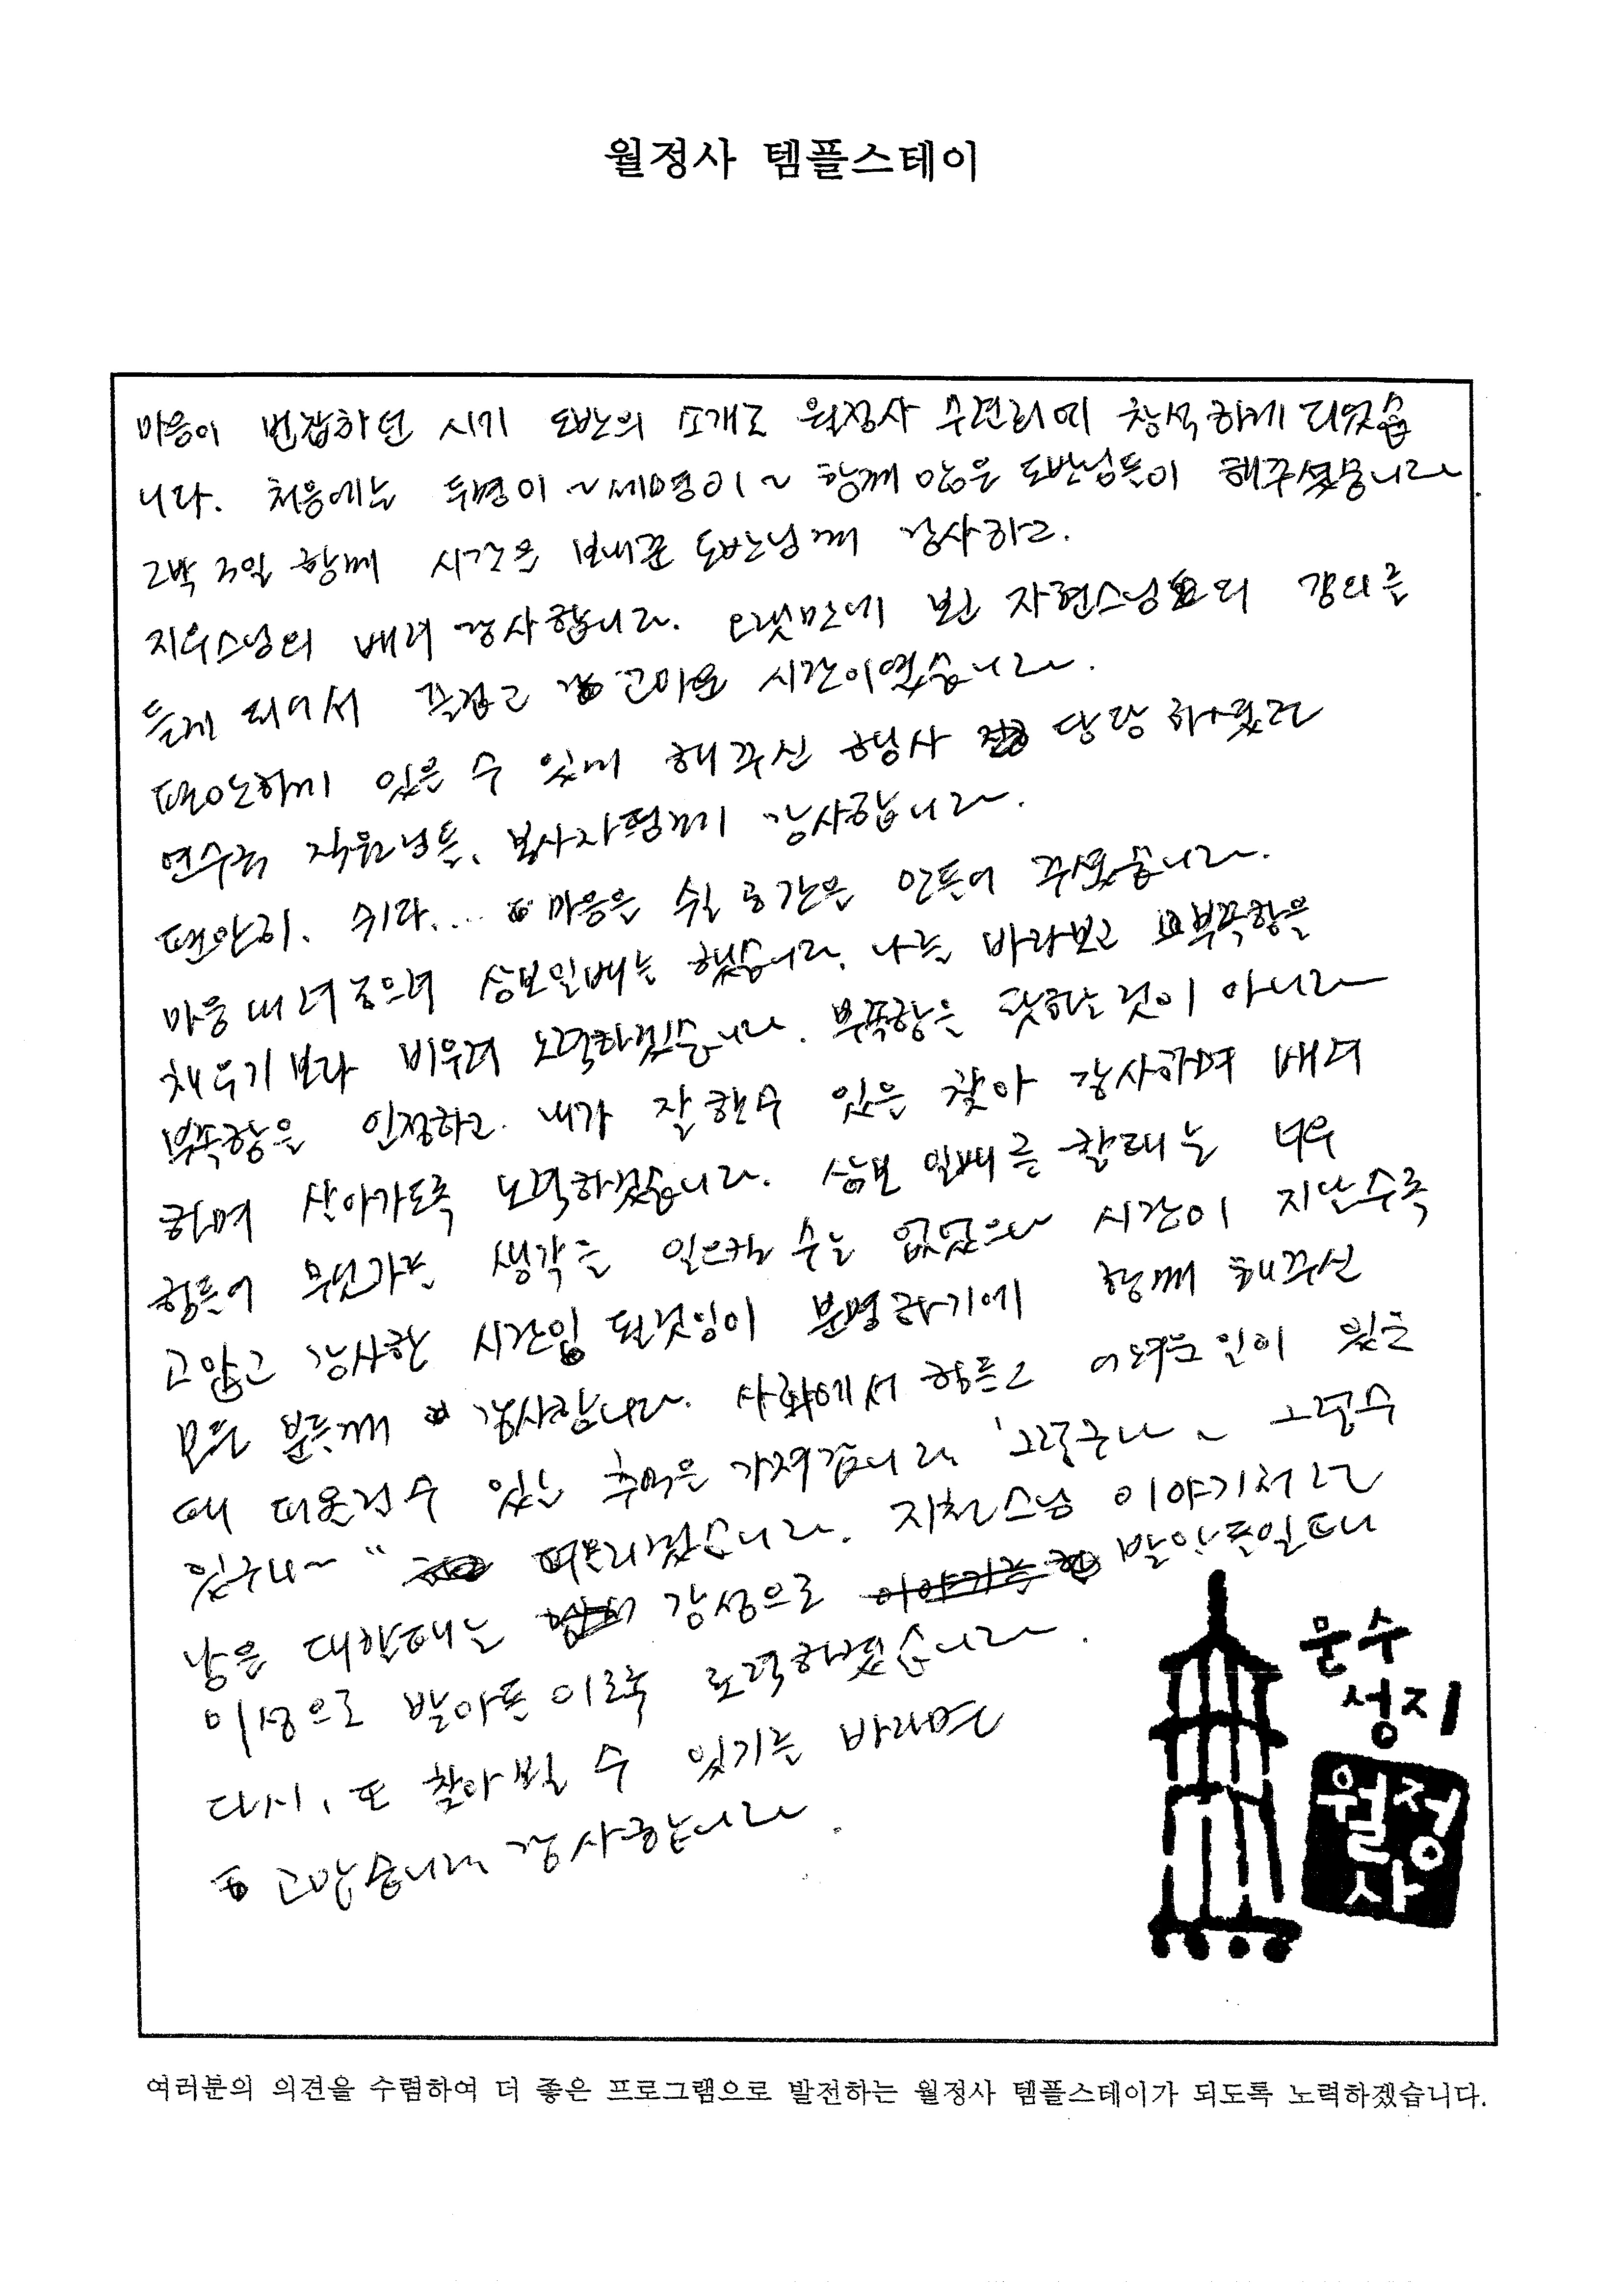 월정사 템플스테이
마음이 번잡하던 시기 도반의 소개로 월정사 수련회에 참석하게 되었습
니다. 처음에는 두명이 ~ 세명이 ~ 함께 않은 도반님들이 해주셨습니다.
2박 3일 함께 시간을 보내준 도반님께 감사하고.
지우스님의 배려 감사합니다. 오랫만에 본 자현스님의 강의를
듣게 되어서 즐겁고 고마운 시간이였습니다.
편안하게 있을 수 있게 해주신 행사 담당 하+였고
연수국 직원님들, 봉사자님께 감사합니다.
편안히. 쉬다.... 마음을 쉴 공간을 만들어 주셨습니다.
마음 내려놓으려 삼보일배는 했습니다. 나를 바라보고 부족함을
채우기 보다 비우려 노력하겠습니다. 부족함은 못한 것이 아니라
부족함을 인정하고. 내가 잘 할수 있을 찾아 감사하며 배려
하며 살아가도록 노력하겠습니다. 삼보 일배를 할때는 너무
힘들어 무언가를 생각을 일으킬 수는 없었으나 시간이 지날수록
고맙고 감사한 시간임 될것임이 분명하기에 함께 해주신
모든 분들께 감사합니다. 사회에서 힘들고 어려운 일이 있을
때 떠올릴수 있는 추억을 가져갑니다. '그렇구나 ~ 그럴수
있구나~" 지천스님 이야기처럼
남을 대할때는 감성으로 받아들일 때
이성으로 받아들이도록 노력하겠습니다.
다시, 또 찾아 뵐 수 있기를 바라며
고맙습니다. 감사합니다.
문수
성지
월정
사
여러분의 의견을 수렴하여 더 좋은 프로그램으로 발전하는 월정사 템플스테이가 되도록 노력하겠습니다.